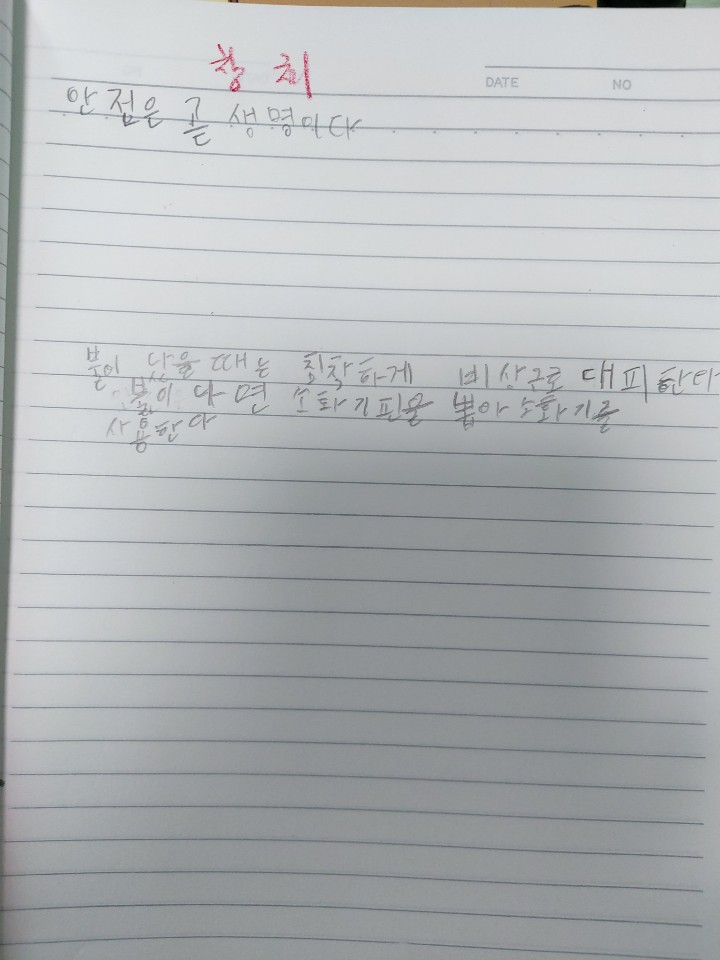 청 취
DATE NO
안점은 곧 생명이다
불이 났을 때는 침착하게 비상근로 대피한다
불이 나면 소화기핀을 뽑아 소화기를
사용한다